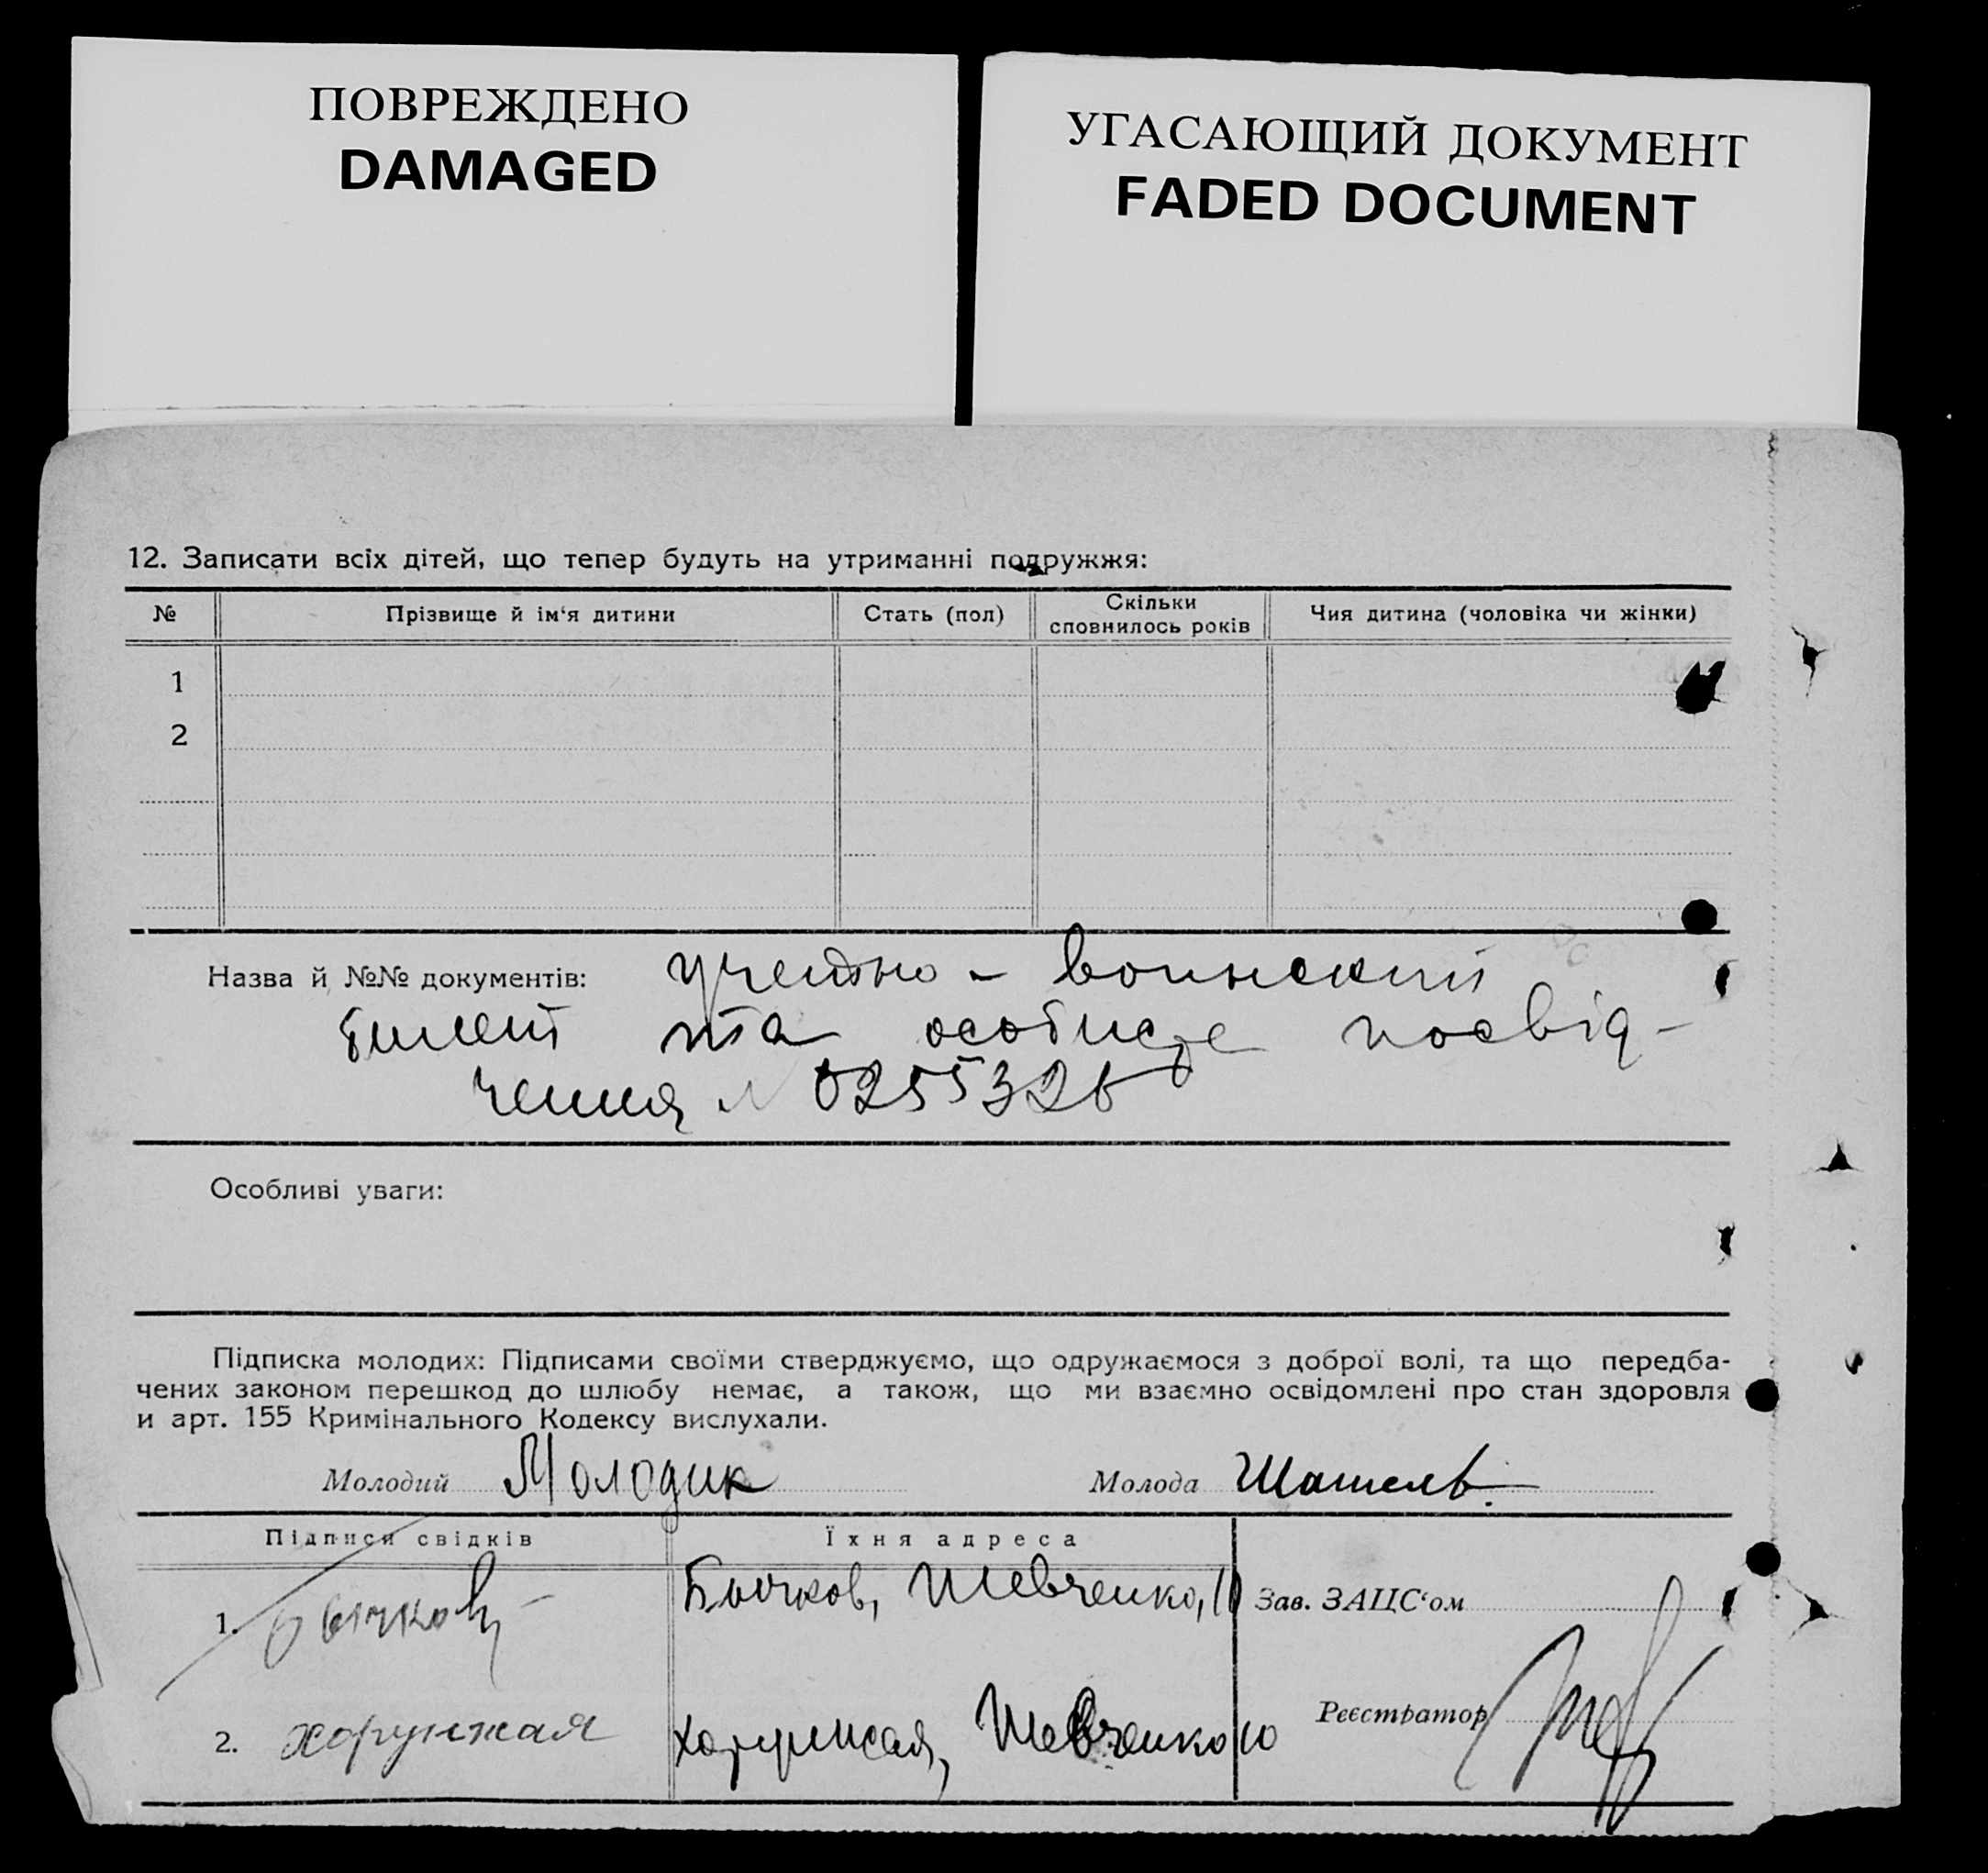 ПОВРЕЖДЕНО
DAMAGED
УГАСАЮЩИЙ ДОКУМЕНТ
FADED DOCUMENT
12. Записати всіх дітей, що тепер будуть на утриманні подружжя:
№ Прізвище й ім‘я дитини Стать (пол) Скільки сповнилось років Чия дитина (чоловіка чи жінки)
1
2
Назва й №№ документів: учетно - воинский
билет та особисте посвід-
чення № 0255326
Особливі уваги:
Підписка молодих: Підписами своїми стверджуємо, що одружаємося з доброї волі, та що передба-
чених законом перешкод до шлюбу немає, а також, що ми взаємно освідомлені про стан здоровля
и арт. 155 Кримінального Кодексу вислухали.
Молодий Молодик Молода Шашель
Підписи свідків Їхня адреса
1. Бычков Бычков, Шевченко, 10 Зав. ЗАЦС‘ом
2. Хоружая Хоружая, Шевченко 10 Реєстратор